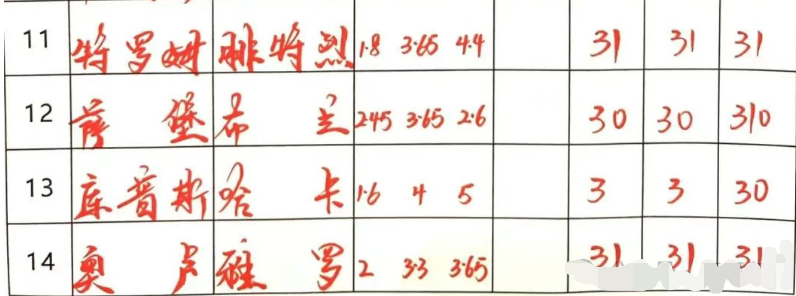 11 特罗姆 腓特烈 1.8 3.65 4.4 31 31 31
12 萨堡 布兰 2.45 3.65 2.6 30 30 310
13 库普斯 哈卡 1.6 4 5 3 3 30
14 奥卢 雅罗 2 3.3 3.65 31 31 31